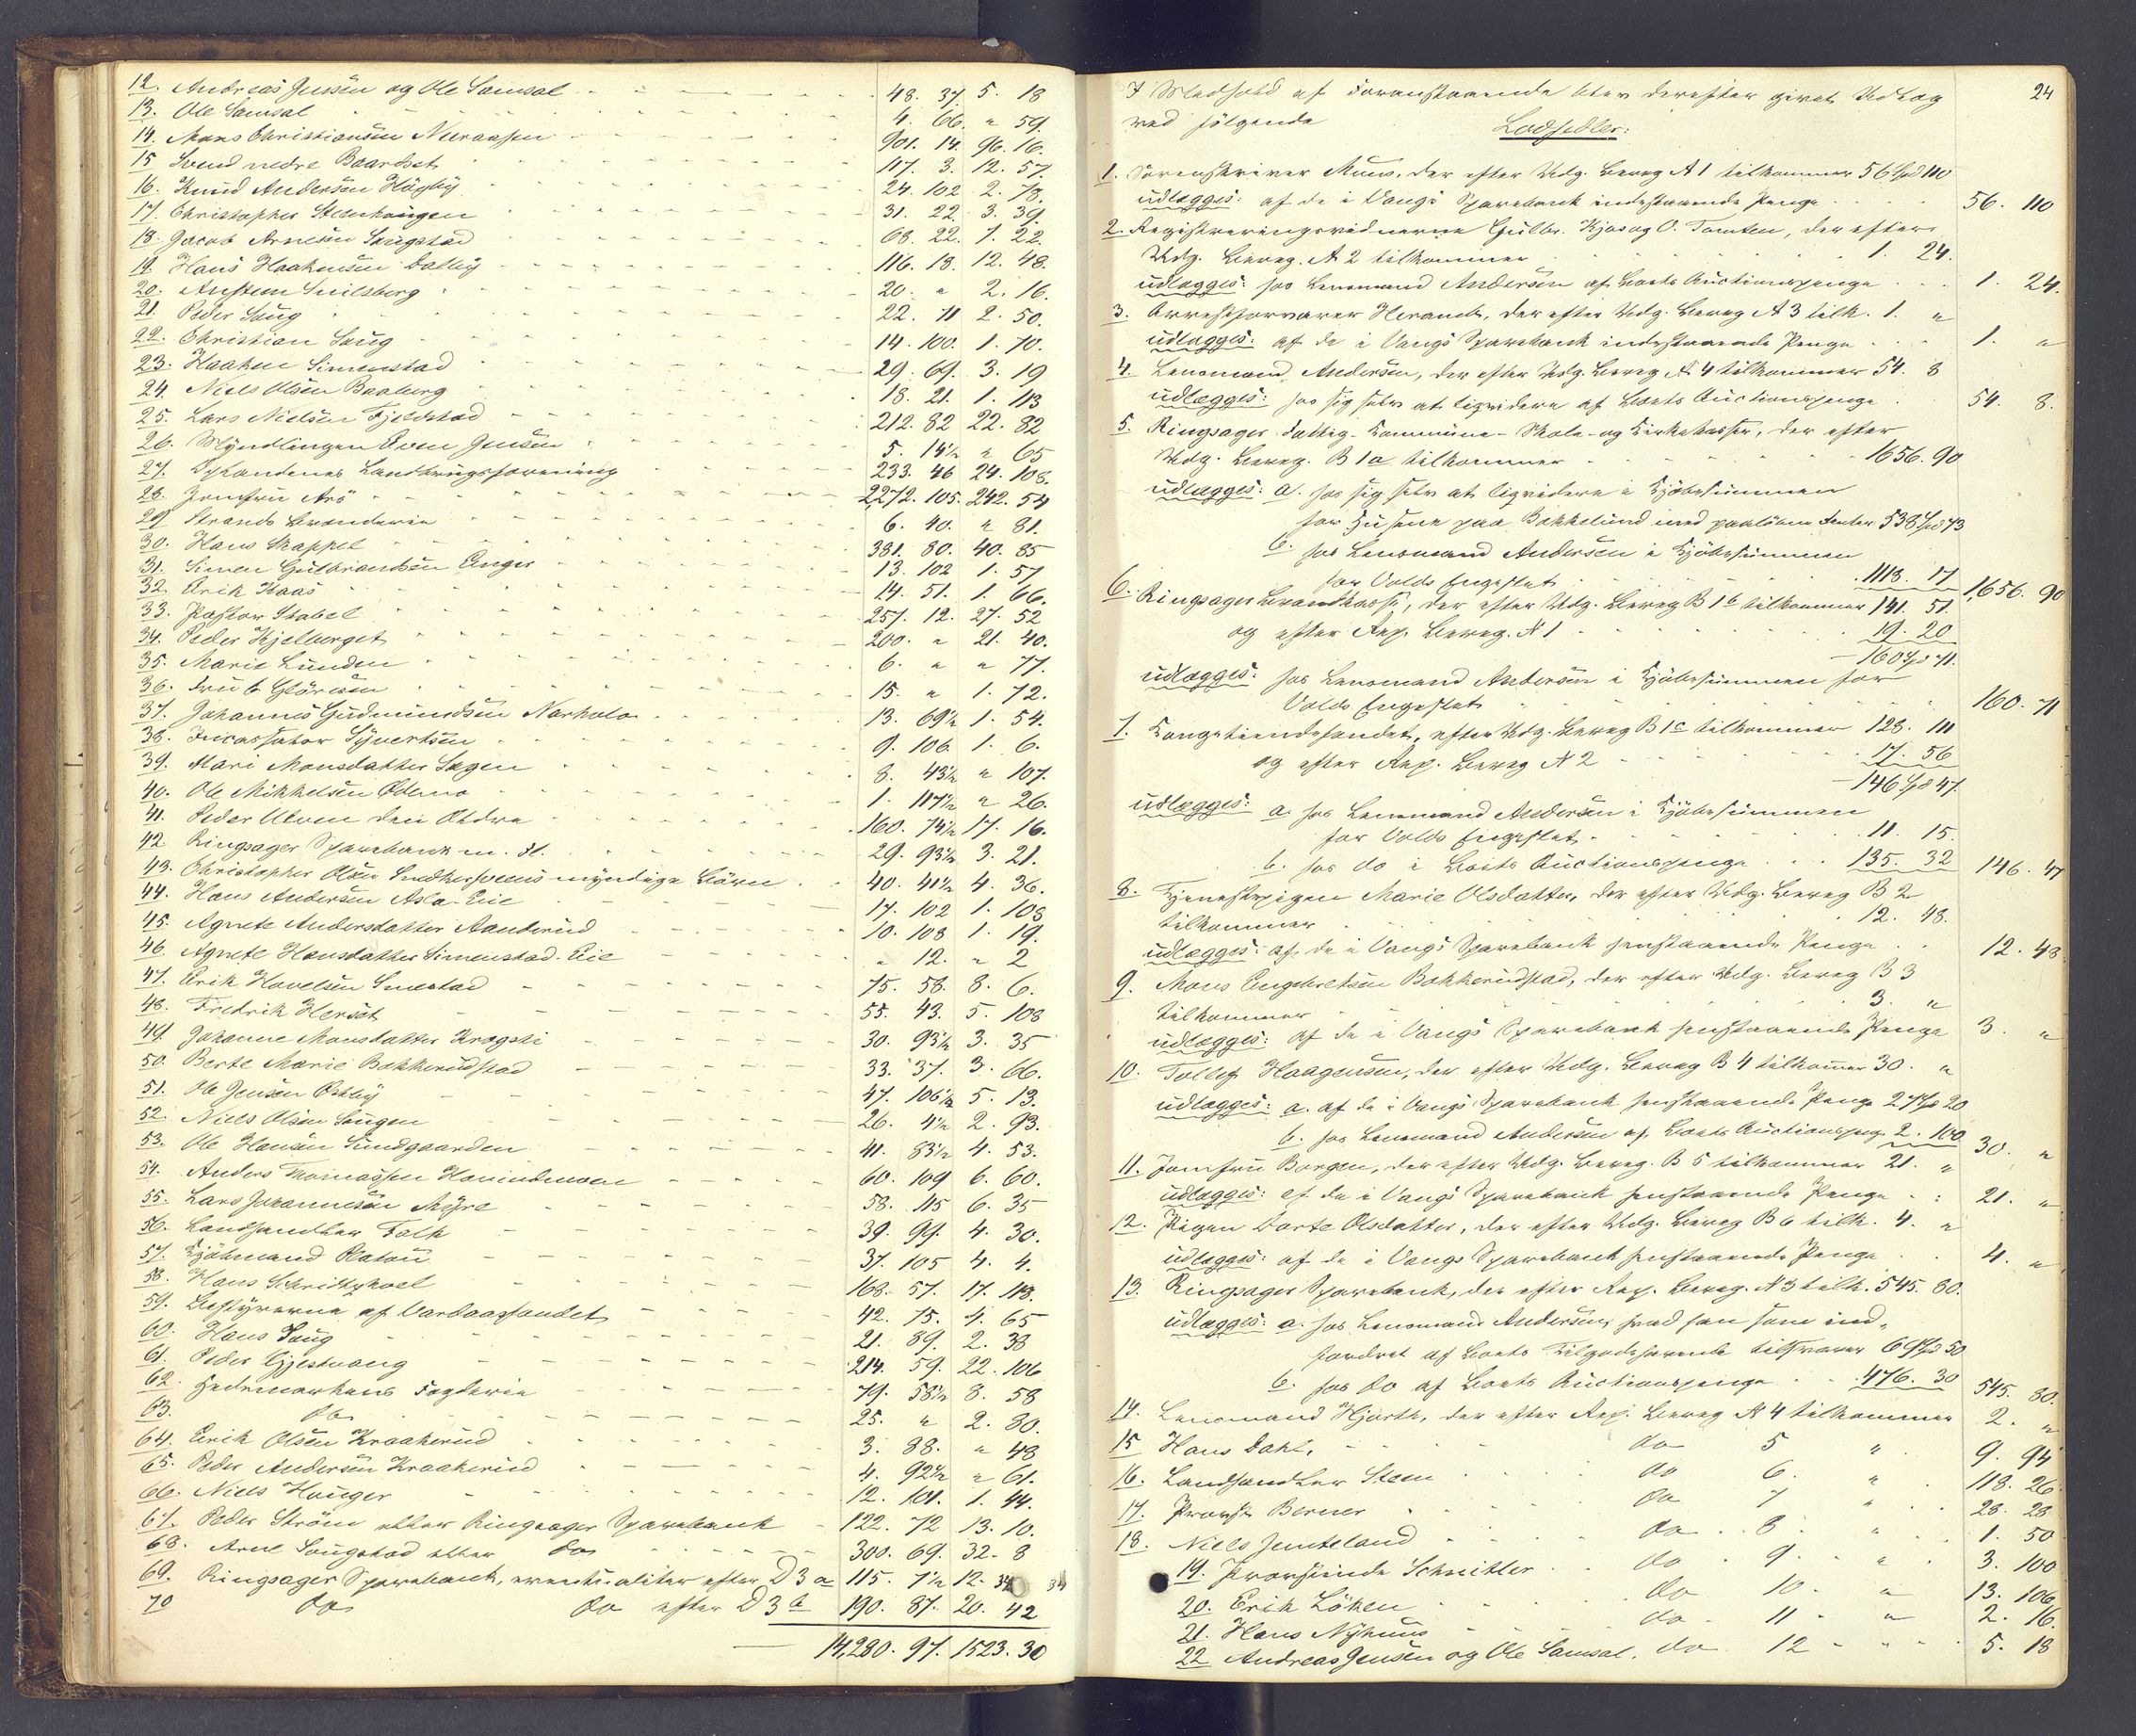 12. Andreas Jensen og Ole Samsal 48. 37. 5. 18
13. Ole Samsal 4. 66. " 59.
14. Mons Christiansen Nuraasen 901. 14. 96. 16.
15 Svend nedre Baardset 117. 3. 12. 57.
16. Knud Andersen Högby 24. 102 2. 78.
17. Christopher Stenhaugen 31. 22. 3. 39.
18. Jacob Arnesen Saugstad 68. 22. 7. 22.
19. Hans Haakensen Dalby 116. 18. 12. 48.
20. Austen Snilsberg 20. " 2. 16.
21. Peder Saug 22. 71 2. 50.
22. Christian Saug 14. 100. 1. 70.
23. Haaken Simenstad 29. 69. 3. 19
24. Niels Olsen Baaberg 18. 21. 1. 113
25. Lars Nielsen Fjeldstad 212. 82 22. 82
26. Myndlingen Even Jensen 5. 14½ " 65
27. Oplandenes Landbrugsforening 233. 46 24. 108.
28. Jomfru Arö 2272. 105. 242. 54
29 Strands Brænderie 6. 40. " 81.
30. Hans Skappel 381. 80. 40. 85
31. Simen Gulbrandsen Enger 13. 102 1. 57
32. Erik Haas 14. 51. 1. 66.
33. Pastor Stabel 257. 12. 27. 52
34. Peder Kjelberget 200. " 21. 40.
35. Marie Lunden 6. " " 77.
36. Fru C. Glörsen 15. " 1. 72.
37. Johannes Gudmundsen Narholo 13. 69½ 1. 54.
38. Incassator Syvertsen 9. 106 1. 6.
39. Mari Monsdatter Sagen 8. 43½ " 107.
40. Ole Mikkelsen Ödemo 1. 117½ " 26.
41. Peder Ulven den Ældre 160. 74½ 17. 16.
42. Ringsager Sparebank m. Fl. 29. 93½ 3. 21.
43. Christopher Olsen Snekkersveens myndige Börn 40. 41½ 4. 36.
44. Hans Andersen Asla-Eie 17. 102 1. 108
45. Agnete Andersdatter Aanderud 10. 108 1. 19.
46. Agnete Hansdatter Simenstad-Eie " 12. " 2
47. Erik Havelsen Smestad 75. 58. 8. 6.
48. Fredrik Herset 55. 43. 5. 108
49. Johanne Monsdatter Kragsti 30. 93½ 3. 35
50. Berte Marie Bakkerudstad 33. 37. 3. 66.
51. Ole Jensen Östby 47. 106½ 5. 13.
52. Niels Olsen Saugen 26. 4½ 2. 93.
53. Ole Hansen Sundgaarden 41. 83½ 4. 53.
54. Anders Thomassen 60. 109 6. 60.
55. Lars Johannesen Myre 58. 115 6. 35
56. Landhandler Falk 39. 99. 4. 30.
57. Kjöbmand Platou 37. 105 4. 4.
58. Hans 168. 57. 17. 113.
59. Bestyrerne af Vardaasfondet 42. 75. 4. 65
60. Hans Saug 21. 89. 2. 38
61. Peder Gjestvang 214. 59. 22. 106
62. Hedemarkens Fogderie 79. 58½ 8. 58
63. do 25. " 2. 80.
64. Erik Olsen Kraakerud 3. 88. " 48
65. Peder Andersen Kraakerud 4. 92½ " 61.
66. Niels Hauger 12. 101. 1. 44.
67. Peder Ström etter Ringsager Sparebank 122. 72 13. 10.
68. Arne Saugstad etter do 300. 69. 32. 8
69. Ringsager Sparebank, eventualiter efter D 3 a 115. 7½ 12. 34
70 do do efter D 3 b 190. 87. 20. 42
14,280. 97. 1523. 30
24
I Medhold af Foranstaaende blev derefter givet Udlæg
ved fölgende Lodsedler:
1. Sorenskriver Mun, der efter Udg. Bereg A 1 tilkommer 56 Spd 110
udlægges: af de i Vangs Sparebank indestaaende Penge 56. 110
2. Registreringsvidnerne Gulbr. Kjos og O. Tomten, der efter
Udg. Bereg. A 2 tilkommer 1. 24.
udlægges: hos Lensmand Andersen af Boets Auctionspenge 1. 24.
3. Arrestforvarer Herand, der efter Udg. Bereg A 3 tilk. 1. "
udlægges: af de i Vangs Sparebank indestaaende Penge 1. "
4. Lensmand Andersen, der efter Udg. Bereg A 4 tilkommer 54. 8
udlægges: hos sig selv at liqvidere af Boets Auctionspenge 54. 8.
5. Ringsager Fattig- Kommune- Skole- og Kirkekasser, der efter
Udg. Bereg. B 1 a tilkommer 1656. 90
udlægges: a. hos sig selv at liqvidere i Kjöbesummen
for Husene paa Bakkelund med paalöbne Renter 538 Spd 73
b. hos Lensmand Andersen i Kjöbesummen
for Volds Engeslet 1118. 17 1,656. 90
6. Ringsager Brandkasse, der efter Udg. Bereg B 1 b tilkommer 141. 51.
og efter Rep. Bereg. N 1 19. 20
160 Spd 71.
udlægges: hos Lensmand Andersen i Kjöbesummen for
Volds Engeslet 160. 71
7. Kongetiendefondet, efter Udg. Bereg B 1 c tilkommer 128. 111
og efter Rep. Bereg N 2 17. 56
146 Spd 47.
udlægges: a. hos Lensmand Andersen i Kjöbesummen
for Volds Engeslet 11. 15.
b. hos do i Boets Auctionspenge 135. 32 146. 47
8. Tjenestepigen Marie Olsdatter, der efter Udg. Bereg B 2
tilkommer 12. 48.
udlægges: af de i Vangs Sparebank henstaaende Penge 12. 48
9. Mons Engebretsen Bakkerudstad, der efter Udg. Bereg B 3
tilkommer 3. "
udlægges: af de i Vangs Sparebank henstaaende Penge 3. "
10. Tollef Haagensen, der efter Udg. Bereg B 4 tilkommer 30. "
udlægges: a. af de i Vangs Sparebank henstaaende Penge 27 Spd 20
b. hos Lensmand Andersen af Boets Auctionspenge 2. 100 30. "
11. Jomfru Borgen, der efter Udg. Bereg. B 5 tilkommer 21. "
udlægges: af de i Vangs Sparebank henstaaende Penge 21. "
12. Pigen Dorte Olsdatter, der efter Udg. Bereg B 6 tilk. 4. "
udlægges: af de i Vangs Sparebank henstaaende Penge 4. "
13. Ringsager Sparebank, der efter Rep. Bereg. N 3 tilk. 545. 80.
udlægges: a. hos Lensmand Andersen, hvad han som ind-
fordret af Boets Tilgodehavende tilsvarer 69 Spd 50
b. hos do af Boets Auctionspenge 476. 30 545. 80.
14. Lensmand Hjorth, der efter Rep. Bereg N 4 tilkommer 2. "
15 Hans Dahl, do 5 " 9. 94
16. Landhandler Steen do 6. " 118. 26
17. Provst Berner do 7 " 28. 28
18. Niels Jemteland do 8. " 1. 50
19. Provstinde Schnitler do 9. " 3. 100
20. Erik Löken do 10. " 13. 106
21. Hans Nyhuus do 11 " 2. 16.
22 Andreas Jensen og Ole Samsal. do 12 " 5. 18